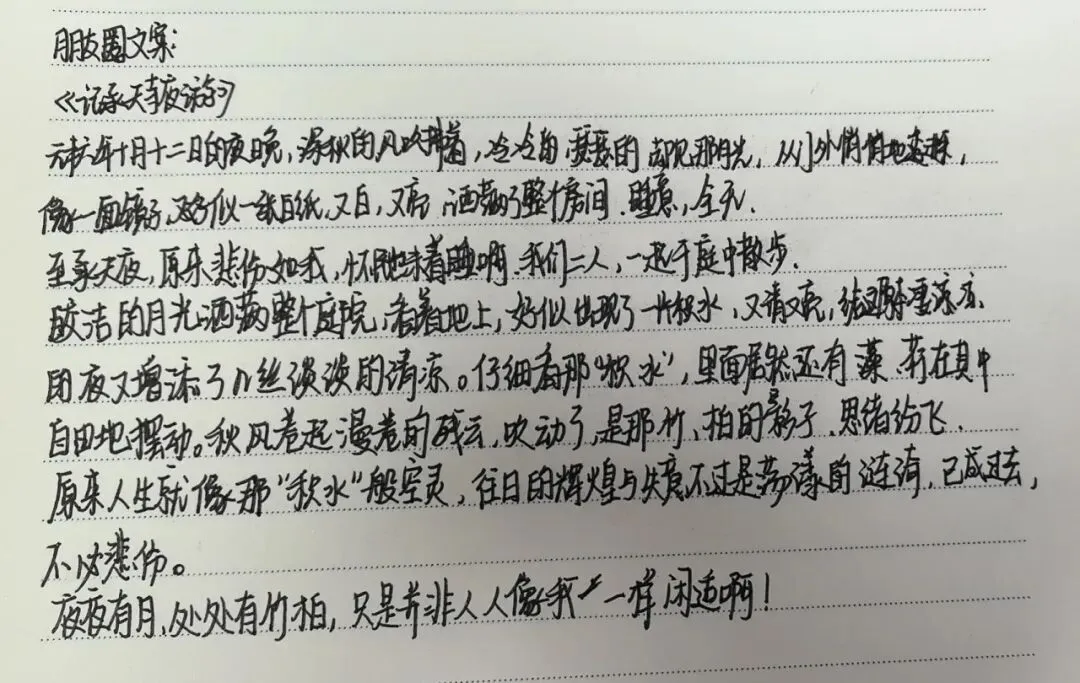 朋友圈文案:
《记承天寺夜游》
元丰六年十月十二日的夜晚,深秋的风吹拂着,冷冷的,却见那月光,从门外悄悄地
像一面镜子,又好似一张白纸,又白,又亮,洒满了整个房间.睡意,全无.
至承天夜,原来悲伤如我,怀民也未着睡啊.我们二人,一起于庭中散步.
皎洁的月光洒满整个庭院,看着地上,好似出现了一片积水,又清又亮,给
的夜又增添了几丝淡淡的清凉。仔细看那“积水”,里面居然还有藻、荇在其中
自由地摆动。秋风卷起漫卷的残云,吹动了,是那竹、柏的影子.思绪纷飞.
原来人生就像那“积水”般空灵,往日的辉煌与失意不过是荡漾的涟漪,已成过去,
不必悲伤。
夜夜有月,处处有竹柏,只是并非人人像我一样闲适啊!